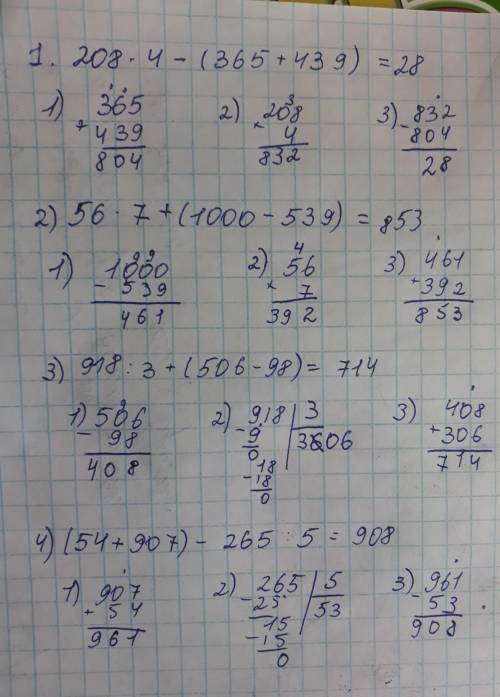 1. 208 · 4 - (365 + 439) = 28
1) 365 + 439 804 2) 3 208 × 4 832 3) - 832 804 28
2) 56 · 7 + (1000 - 539) = 853
1) 99 1000 - 539 461 2) 4 56 × 7 392 3) 461 + 392 853
3) 918 : 3 + (506 - 98) = 714
1) 9 506 - 98 408 2) - 918 3 9 306 0 - 18 18 0 3) 408 + 306 714
4) (54 + 907) - 265 : 5 = 908
1) 907 + 54 961 2) - 265 5 25 53 - 15 15 0 3) - 961 53 908